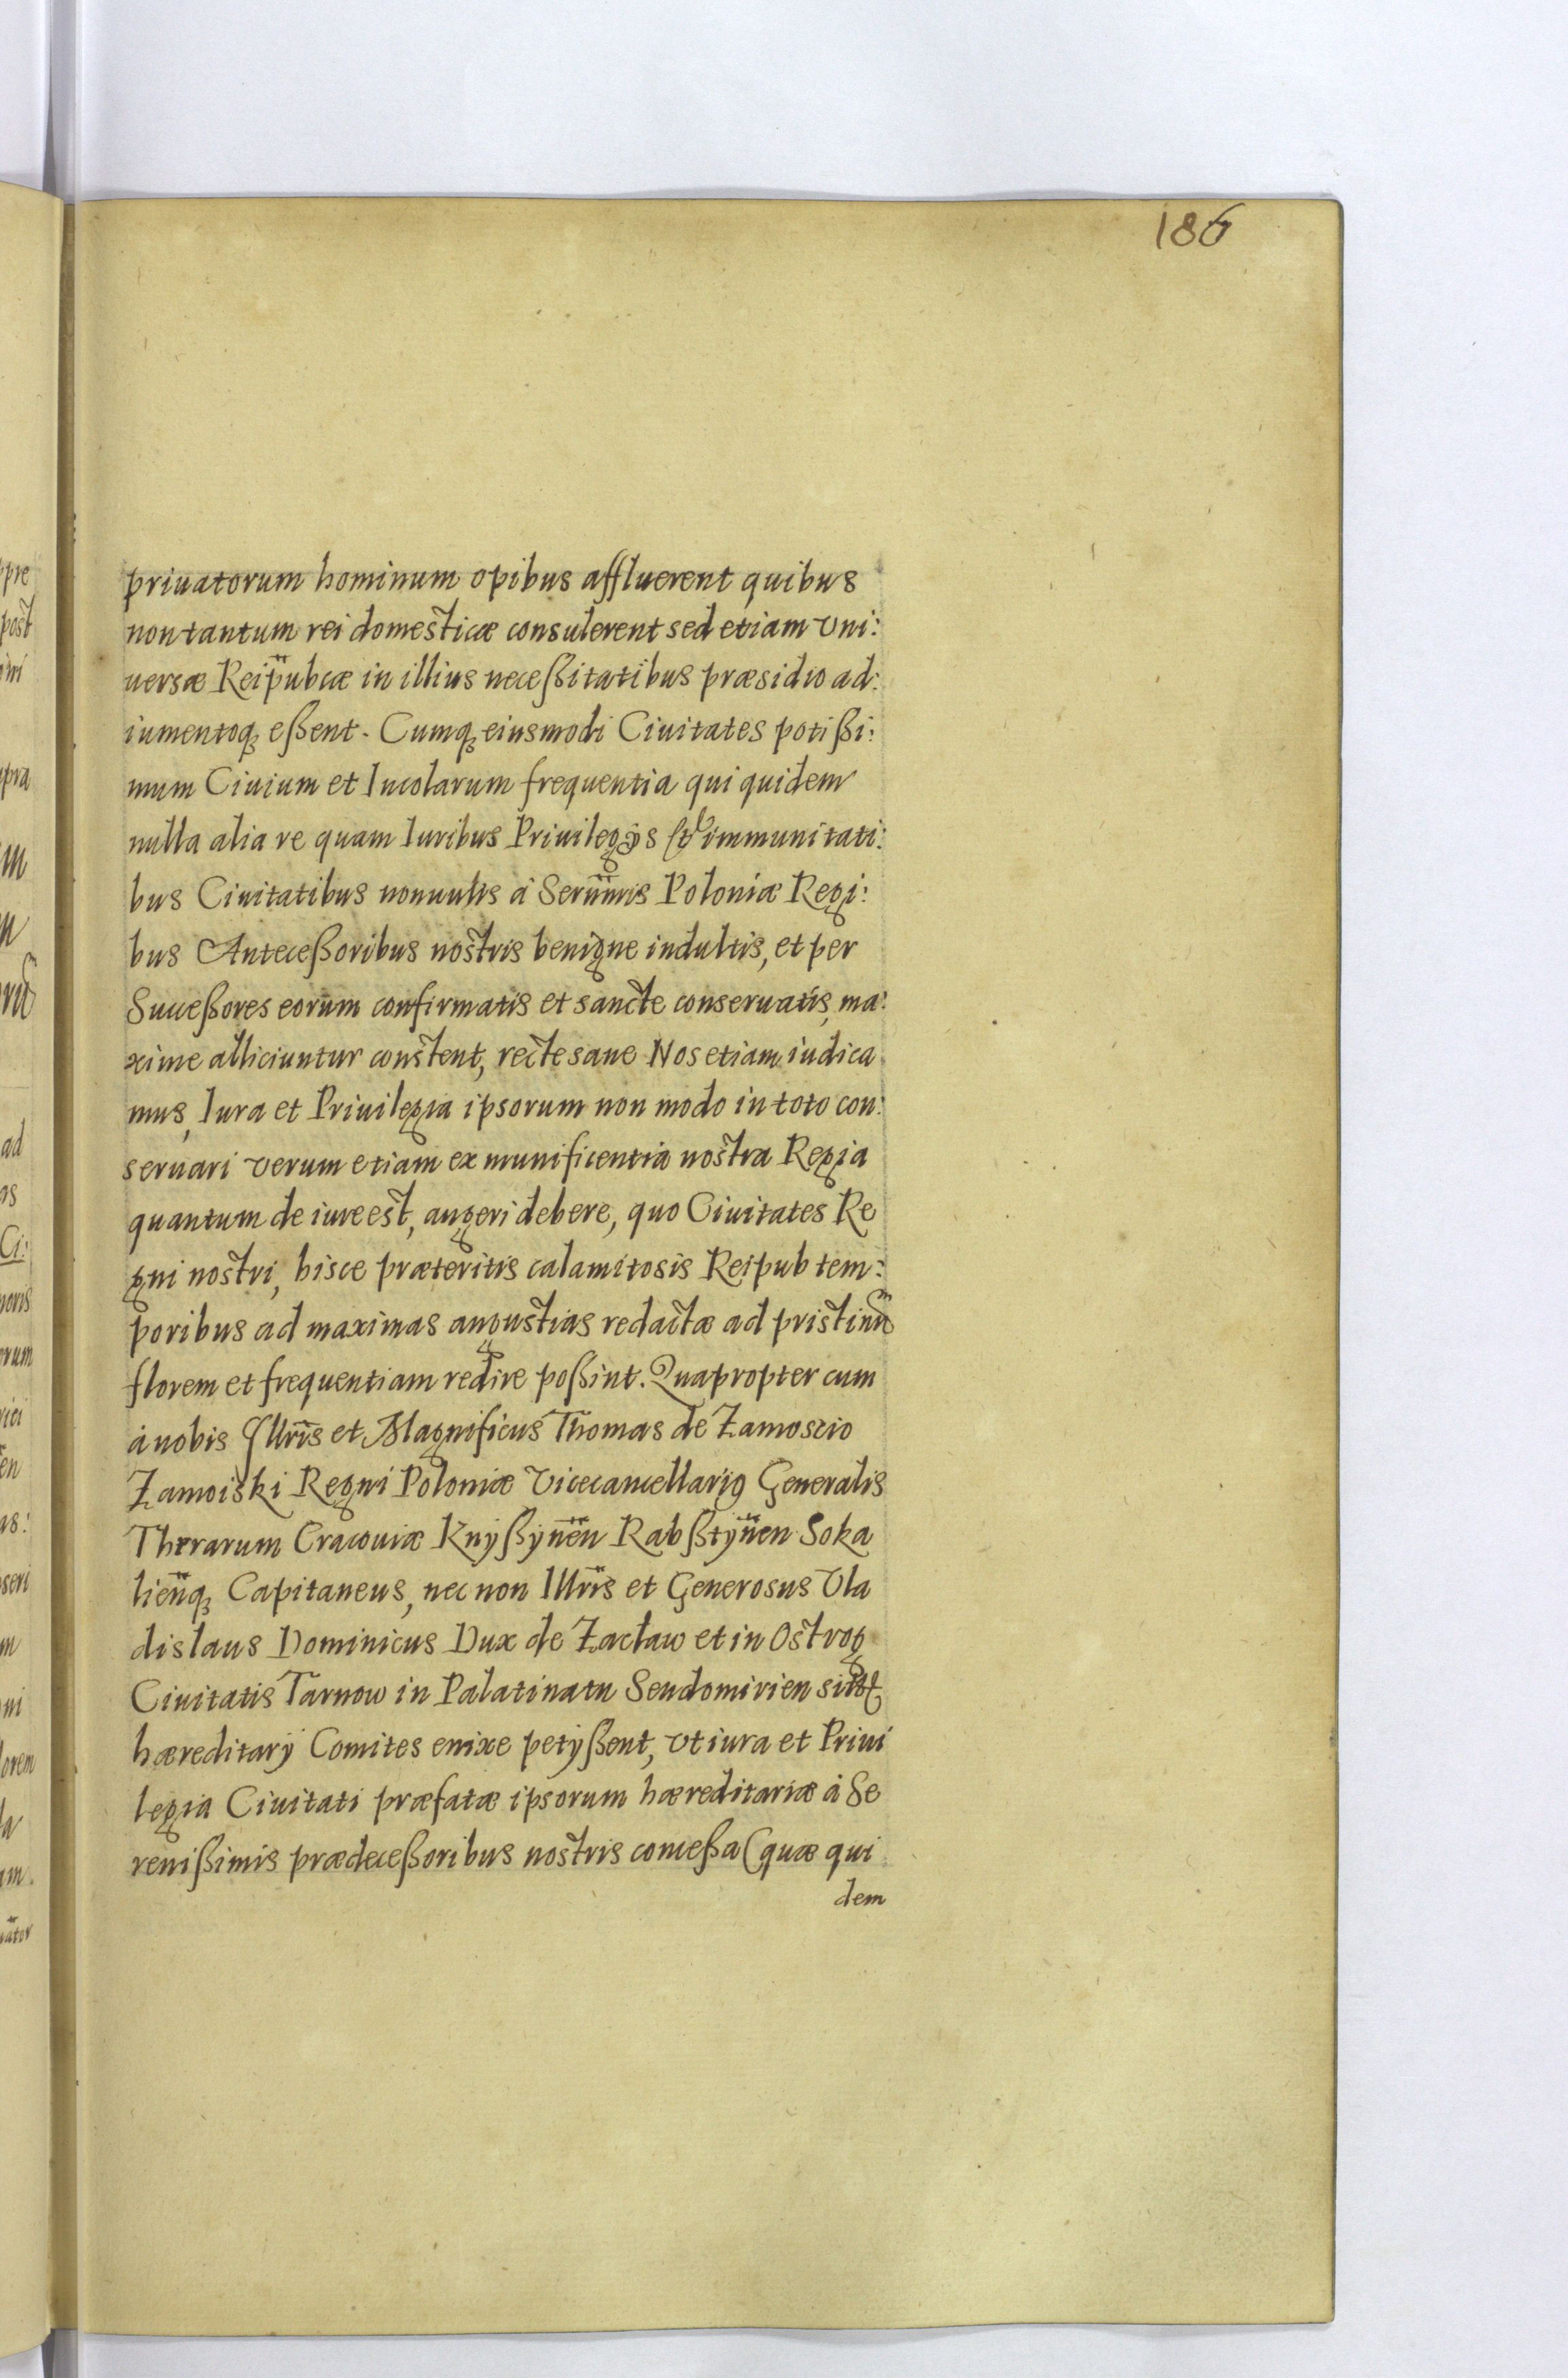 186
priuatorum hominum opibus affluerent quibus
non tantum rei domesticæ consulerent sed etiam vni:
uersæ Reipubcæ in illius neceßitatibus præsidio ad:
iumentoq₃ eßent. Cumq₃ eiusmodi Ciuitates potißi:
mum Ciuium et Incolarum frequentia qui quidem
nulla alia re quam Iuribus Priuilegÿs et immunitati:
bus Ciuitatibus nonnulis á Serñmis Poloniæ Regi:
bus Anteceßoribus nostris benigne indultis, et per
Succeßores eorum confirmatis et sancte conseruatis, ma:
xime alliciuntur constent, recte sane Nos etiam iudica
mus, Iura et Priuilegia ipsorum non modo in toto con:
seruari verum etiam ex munificentia nostra Regia
quantum de iure est, augeri debere, quo Ciuitates Re
gni nostri, hisce præteritis calamitosis Reipub tem:
poribus ad maximas angustias redactæ ad pristinũ
florem et frequentiam redire poßint. Quapropter cum
á nobis Illr̃is et Magnificus Thomas de Zamoscio
Zamoiski Regni Poloniæ Vicecancellariꝯ Generalis
Therarum Cracouiæ Knÿßÿneñ Rabßtÿñen Soka
lieñq₃ Capitaneus, nec non Illr̃is et Generosus Vla
dislaus Dominicus Dux de Zacław et in Ostrog
Ciuitatis Tarnow in Palatinatu Sendomirien sitæ
hæreditarÿ Comites enixe petÿßent, vt iura et Priui
legia Ciuitati præfatæ ipsorum hæreditariæ á Se
renißimis prædeceßoribus nostris conceßa (quæ qui
dem